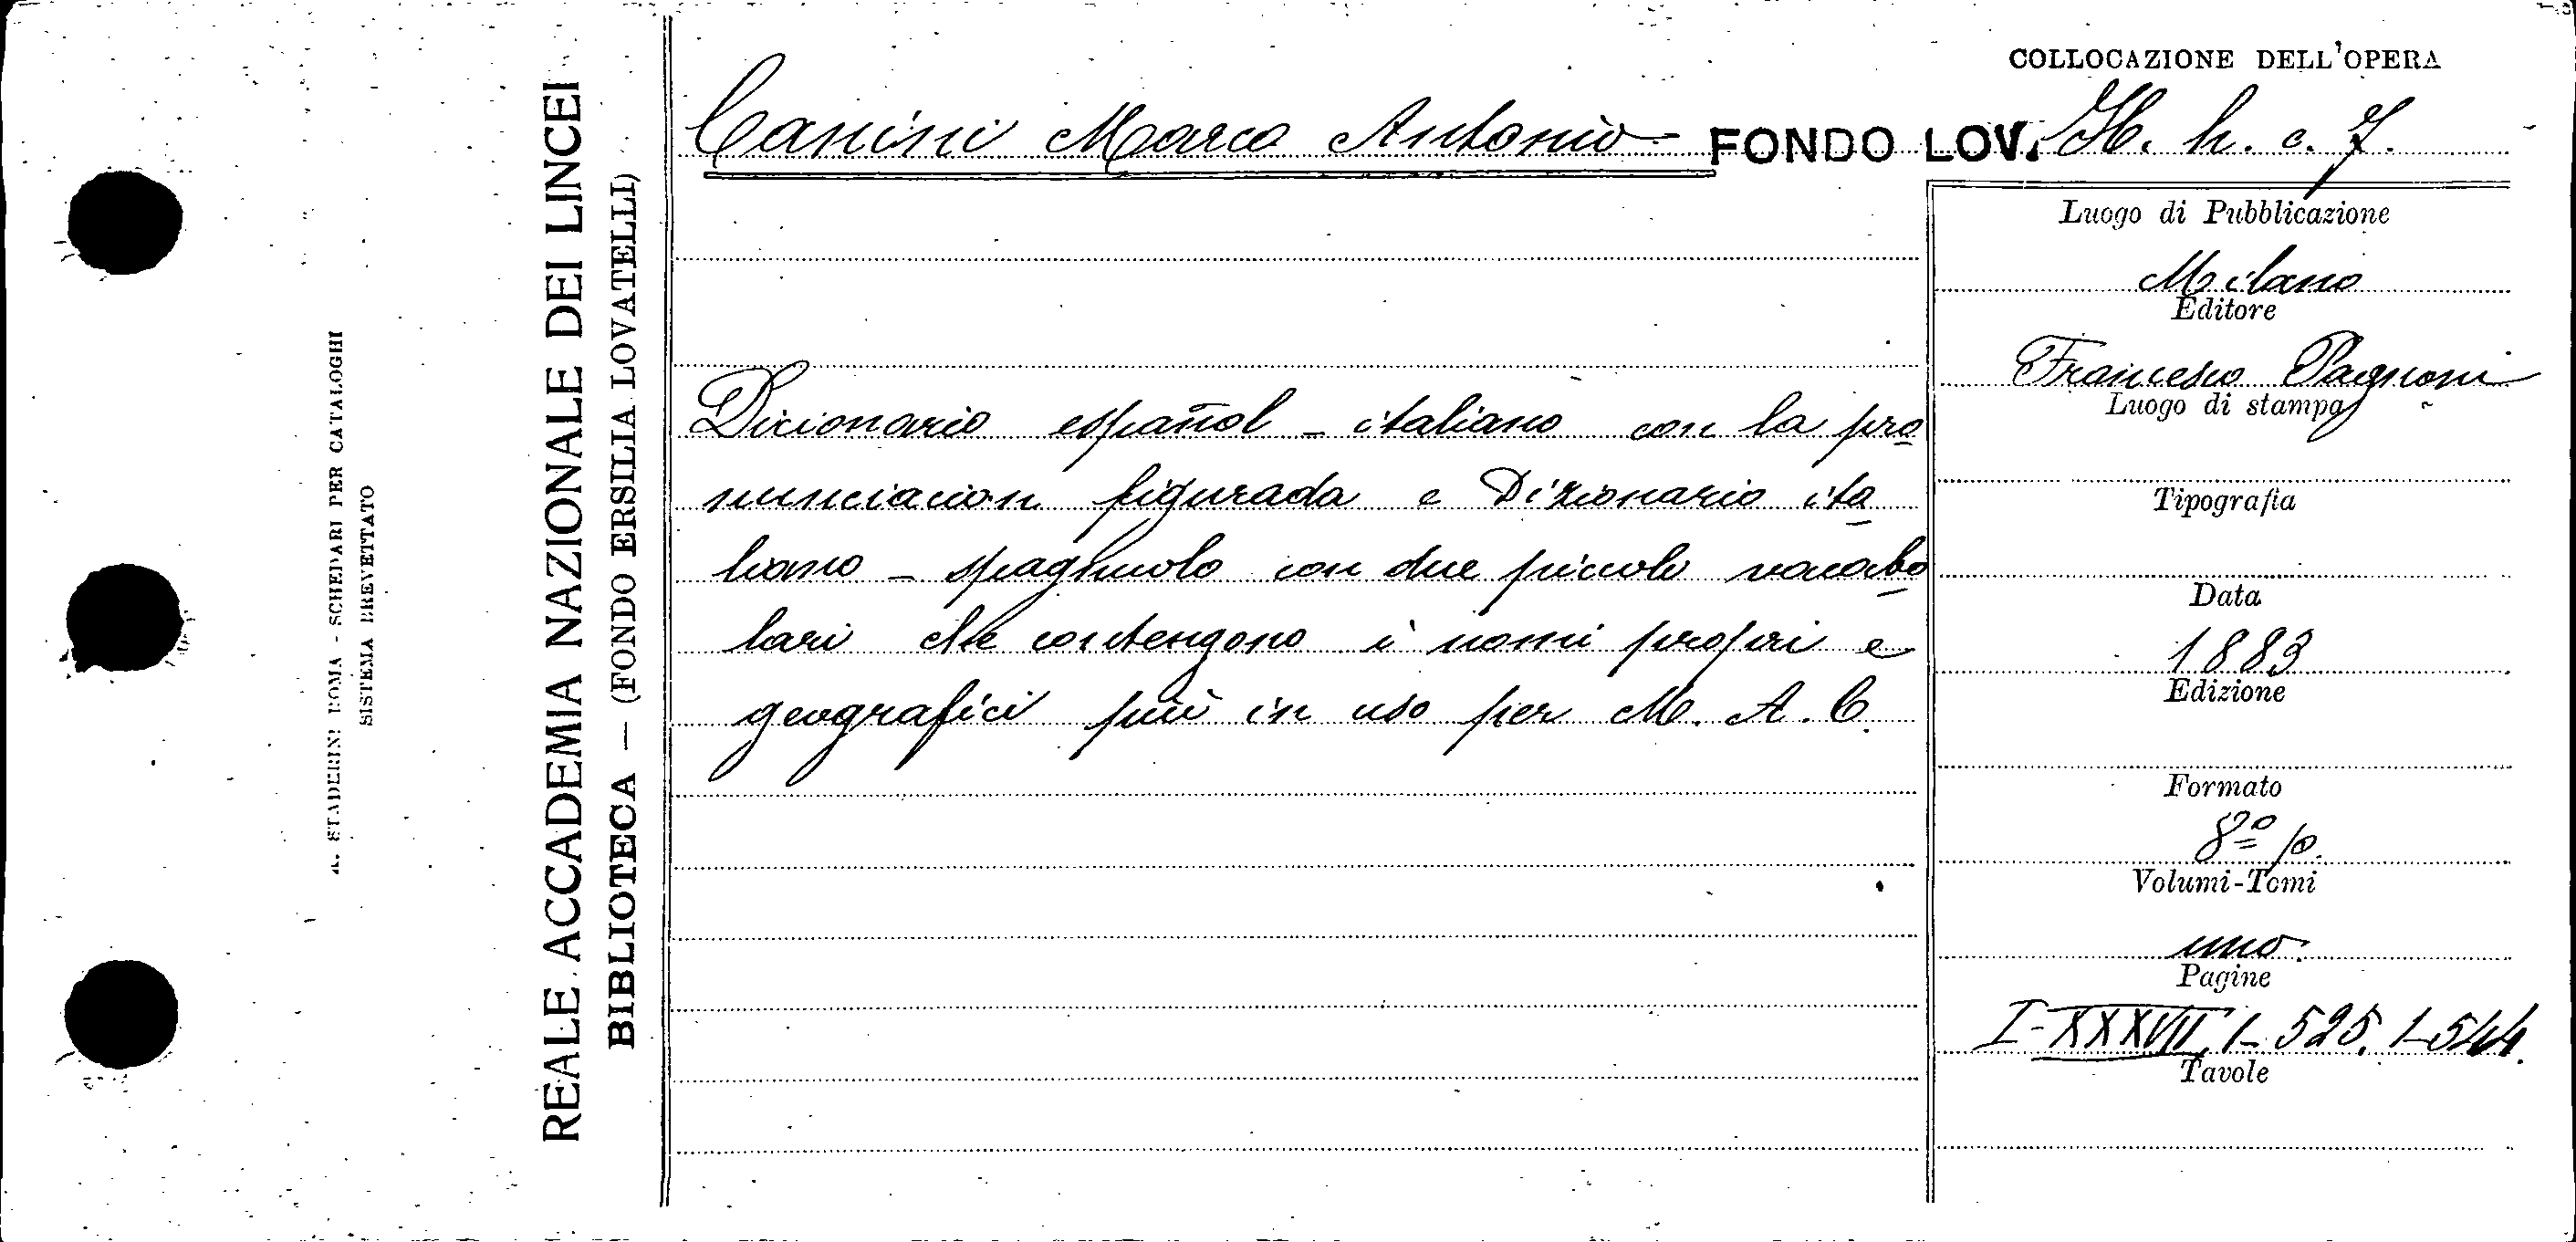 A. STADERINI ROMA - SCHEDARI PER CATALOGHI
SISTEMA BREVETTATO
REALE ACCADEMIA NAZIONALE DEI LINCEI
BIBLIOTECA — (FONDO ERSILIA LOVATELLI)
COLLOCAZIONE DELL'OPERA
Canini Marco Antonio FONDO LOV. H. h. c. 7.
Dicionario español - italiano con la pro
nunciacion figurada e Dizionario ita
liano - spagnuolo con due piccole vocabo
lari che contengono i nomi propri e
geografici più in uso per M. A. C.
Luogo di Pubblicazione
Milano
Editore
Francesco Pagnoni
Luogo di stampa
Tipografia
Data
1883
Edizione
Formato
8º p.
Volumi-Tomi
uno.
Pagine
I-XXXVII, 1-525, 1-544.
Tavole